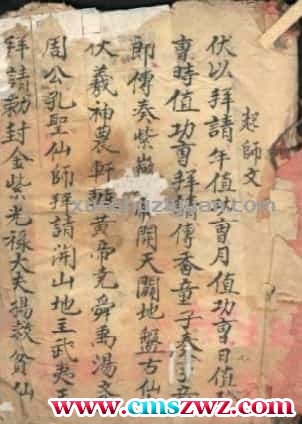 起師文
伏以拜請年值功曹月值功曹日值
曹時值功曹拜請傳香童子奏
即傳奏紫開天闢地盤古仙
伏羲神農軒轅黃帝堯舜禹湯文
周公孔聖仙師拜請開山地主武夷王
拜請勅封金紫光祿大夫楊救貧仙
www.cmszwz.com